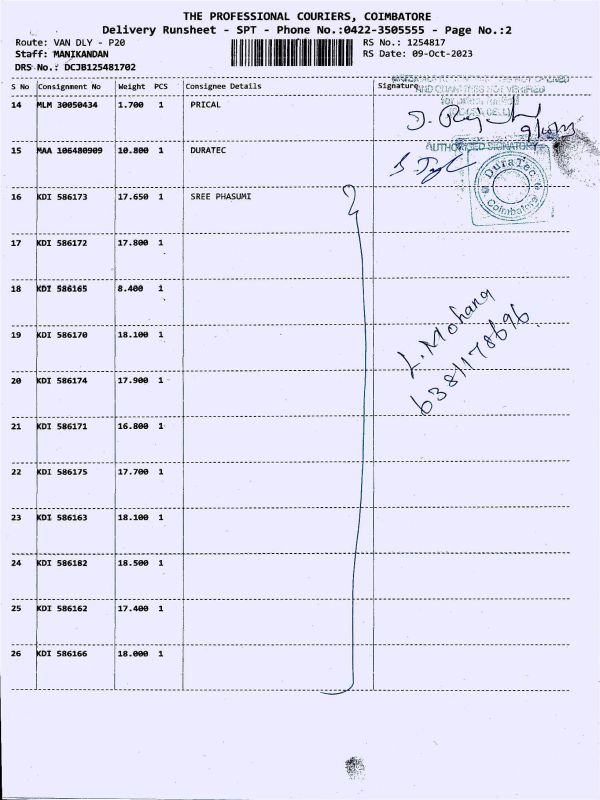 THE PROFESSIONAL COURIERS, COIMBATORE
Delivery Runsheet - SPT - Phone No.:0422-3505555 - Page No.:2
Route: VAN DLY - P20 RS No.: 1254817
Staff: MANIKANDAN RS Date: 09-Oct-2023
DRS No.: DCJB125481702
S No Consignment No Weight PCS Consignee Details Signature
14 MLM 30050434 1.700 1 PRICAL
9/10/23
15 MAA 106480909 10.800 1 DURATEC
AUTHORISED SIGNATORY
DuraTec
Coimbatore
16 KDI 586173 17.650 1 SREE PHASUMI
17 KDI 586172 17.800 1
18 KDI 586165 8.400 1
L. Mohana
6381178696
19 KDI 586170 18.100 1
20 KDI 586174 17.900 1
21 KDI 586171 16.800 1
22 KDI 586175 17.700 1
23 KDI 586163 18.100 1
24 KDI 586182 18.500 1
25 KDI 586162 17.400 1
26 KDI 586166 18.000 1